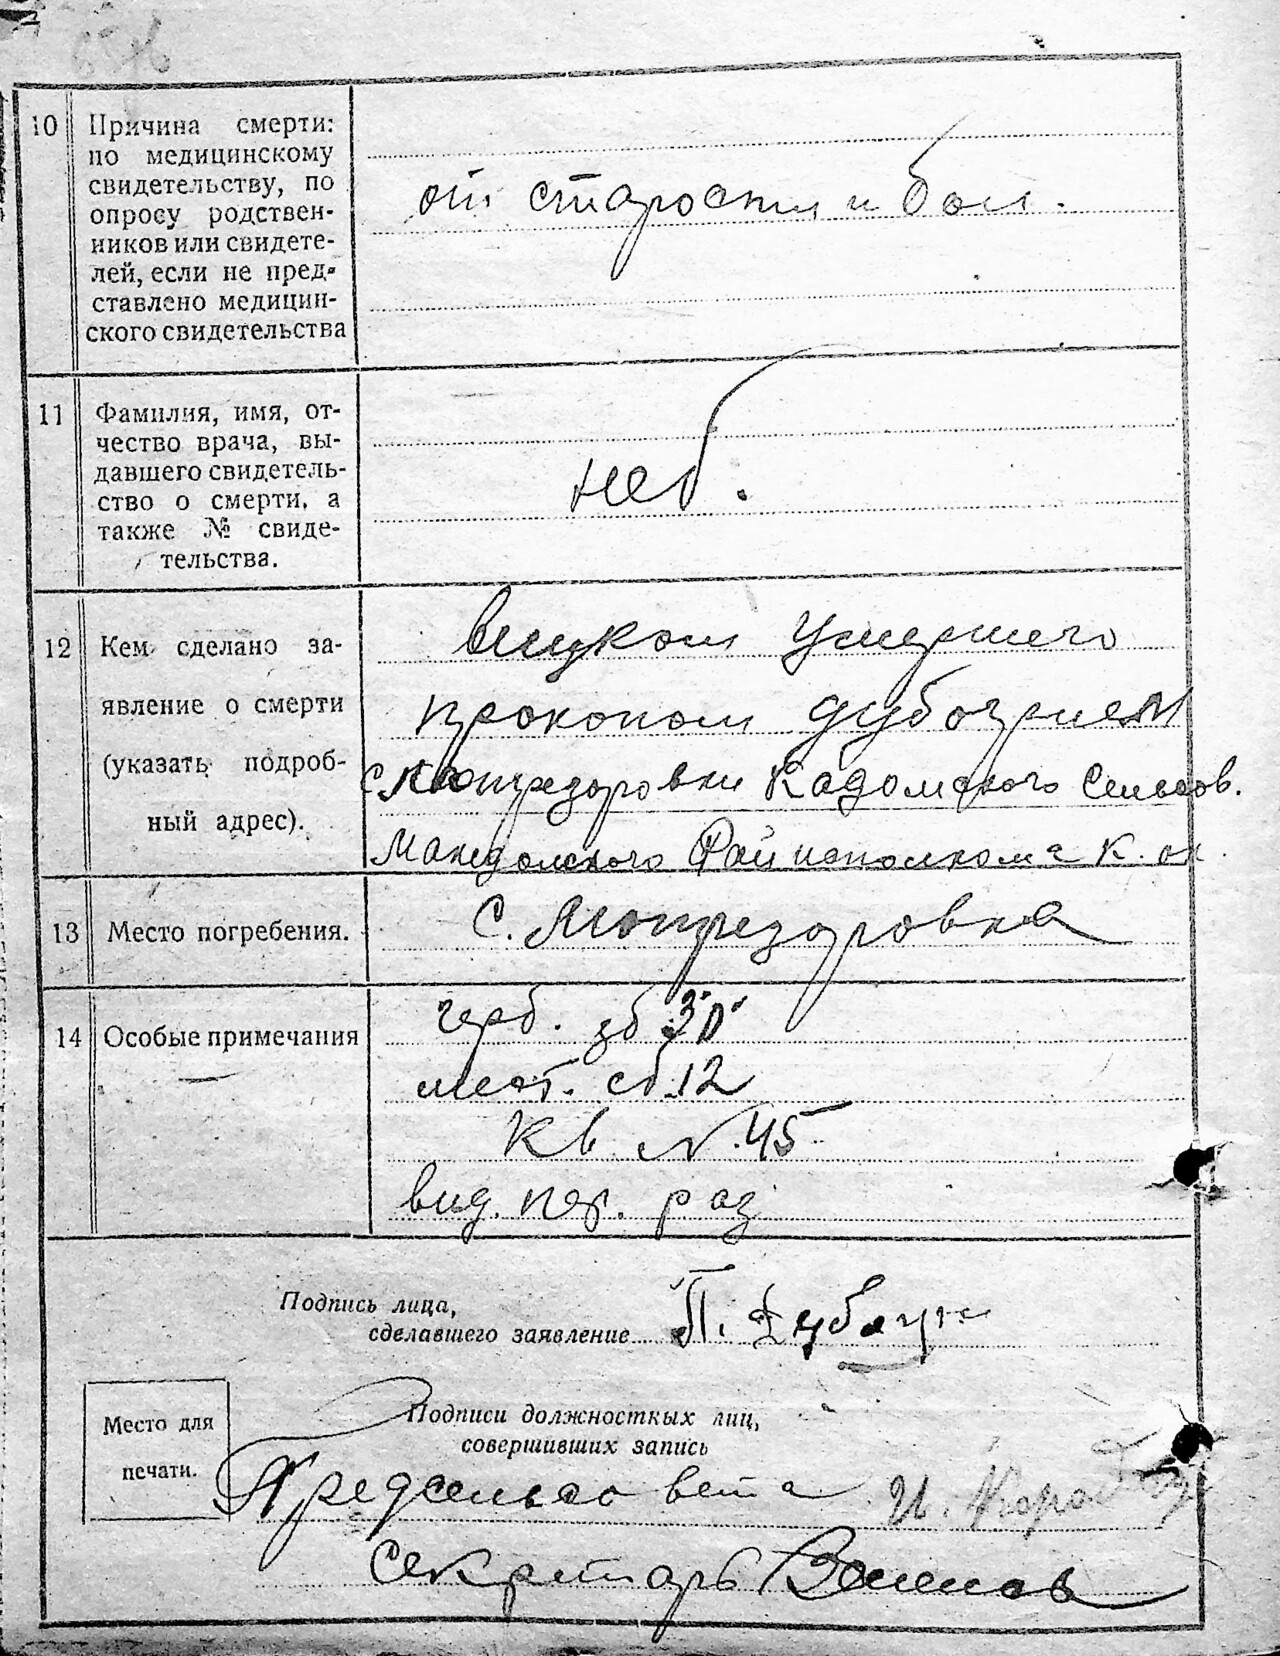 10 Причина смерти:
по медицинскому
свидетельству, по
опросу родствен-
ников или свидете-
лей, если не пред-
ставлено медицин-
ского свидетельства
от старости и бол.
11 Фамилия, имя, от-
чество врача, вы-
давшего свидетель-
ство о смерти, а
также № свиде-
тельства.
неб.
12 Кем сделано за-
явление о смерти
(указать подроб-
ный адрес).
внуком умершего
прокопом
с. Кадомского Сельсов.
Райисполкома К. ок.
13 Место погребения.
С.
14 Особые примечания
герб. сб. 30
мест. сб. 12
Кв. №. 45
вид. пер. раз
Подпись лица,
сделавшего заявление П.
Место для
печати.
Подписи должностных лиц,
совершивших запись
Предсельсовета И.
Секретарь